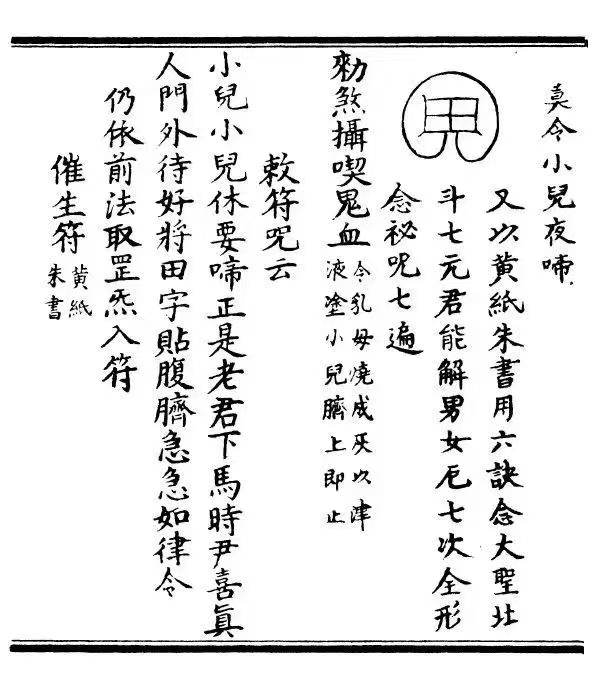 莫令小兒夜啼
又以黄紙朱書用六訣念大聖北
斗七元君能解男女厄七次全形
念祕呪七遍
勑煞攝喫鬼血
令乳母燒成灰以津
液塗小兒臍上即止
敕符呪云
小兒小兒休要啼正是老君下馬時尹喜眞
人門外待好將田字貼腹臍急急如律令
仍依前法取罡炁入符
催生符
黄紙
朱書